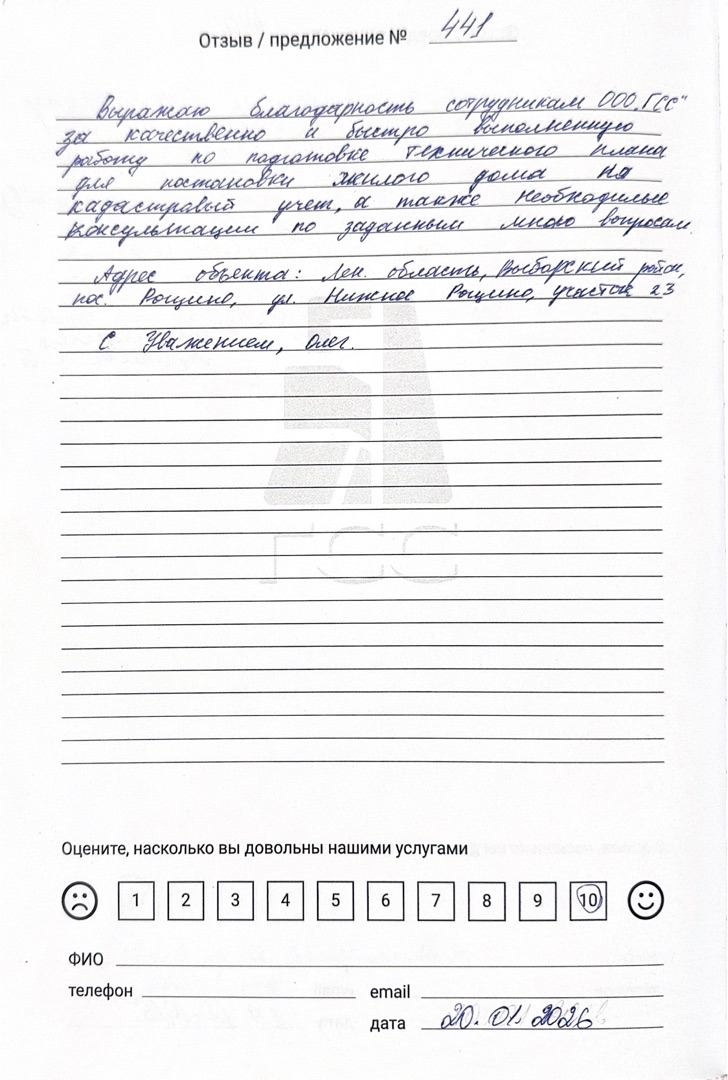 Отзыв / предложение № 441
Выражаю благодарность сотрудникам ООО „ГСС"
за качественно и быстро выполненную
работу по подготовке технического плана
для постановки жилого дома на
кадастровый учет, а также необходимые
консультации по заданным мною вопросам.
Адрес объекта: Лен. область, Выборгский район,
пос. Рощино, ул. Нижнее Рощино, участок 23
С Уважением, Олег.
ГСС
Оцените, насколько вы довольны нашими услугами
1 2 3 4 5 6 7 8 9 10
ФИО
телефон email
дата 20.01.2026